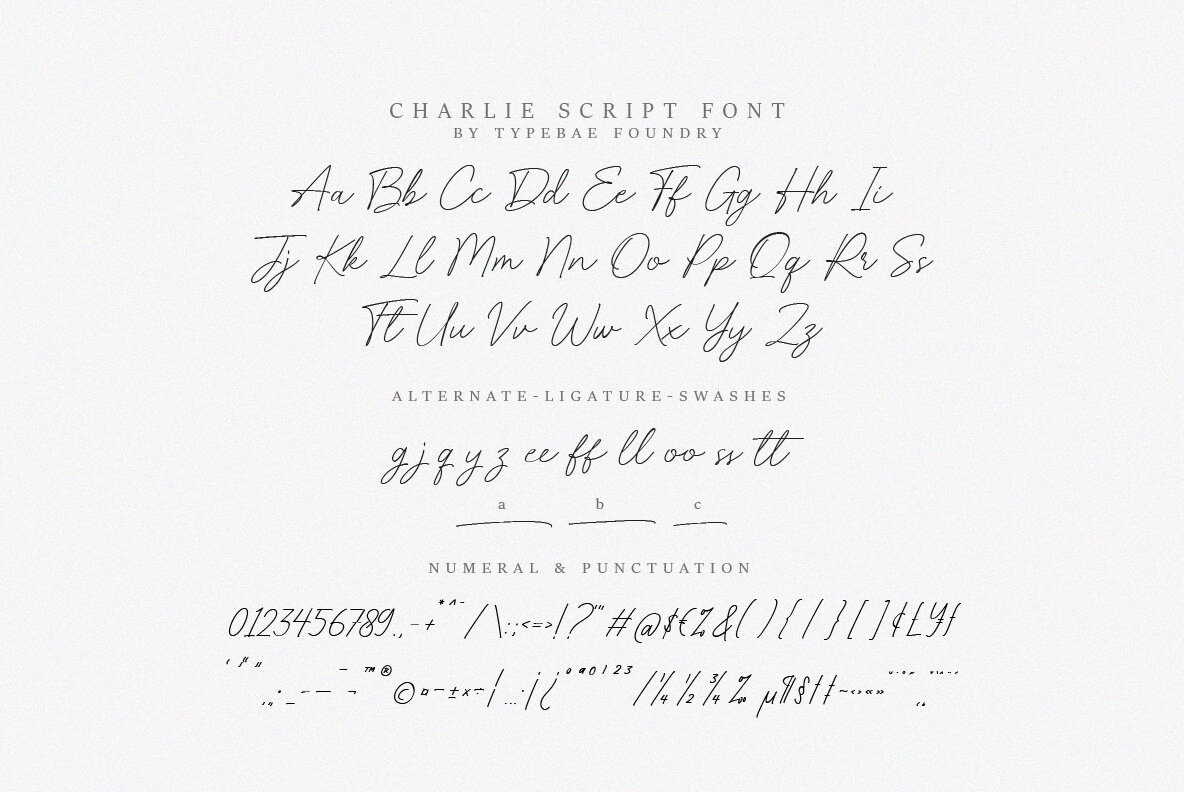 CHARLIE SCRIPT FONT
BY TYPEBAE FOUNDRY
Aa Bb Cc Dd Ee Ff Gg Hh Ii
Jj Kk Ll Mm Nn Oo Pp Qq Rr Ss
Tt Uu Vv Ww Xx Yy Zz
ALTERNATE-LIGATURE-SWASHES
g j q y z ee ff ll oo ss tt
a b c
NUMERAL & PUNCTUATION
0123456789.,-+*^~/\:;<=>!?'"#@$€%&(){|}[]¢£¥ƒ
™®©¤¬±×÷¦…·|¿ºª0123/¼½¾‰µ¶§†‡~‹›«»